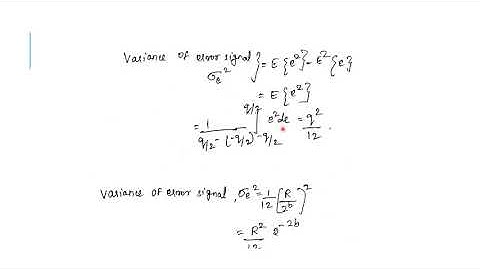 Variance of error signal } = E{e²} - E²{e}
σe²
= E{e²}
= 1/(q/2 - (-q/2)) ∫_{-q/2}^{q/2} e² de = q²/12 .
Variance of error signal, σe² = 1/12 [R/2^b]²
= R²/12 2^{-2b}